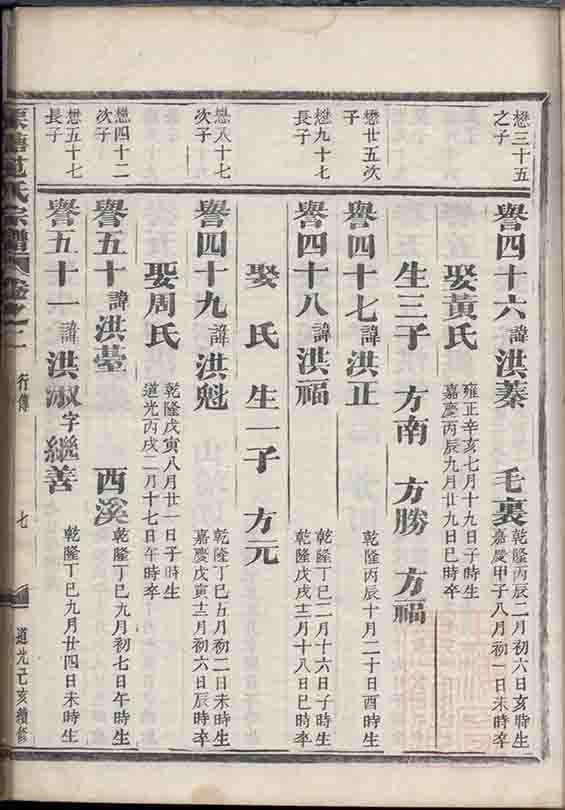 懋三十五之子
譽四十六 諱洪蓁 毛裏 乾隆丙辰二月初六日亥時生 嘉慶甲子八月初一日未時卒
娶黃氏 雍正辛亥七月十九日子時生 嘉慶丙辰九月廿九日巳時卒
生三子 方南 方勝 方福
懋廿五次子
譽四十七 諱洪正 乾隆丙辰十月二十日酉時生
懋九十七長子
譽四十八 諱洪福 乾隆丁巳二月十六日子時生 乾隆戊戌十二月十八日巳時卒
娶 氏 生一子 方元
懋八十七次子
譽四十九 諱洪魁 乾隆丁巳五月初二日未時生 嘉慶戊寅十二月初六日辰時卒
娶周氏 乾隆戊寅八月廿一日子時生 道光丙戌二月十七日午時卒
懋四十二次子
譽五十 諱洪臺 西溪 乾隆丁巳九月初七日午時生
懋五十七長子
譽五十一 諱洪淑 字繼善 乾隆丁巳九月廿四日未時生
范氏宗譜 卷之二 行傳 七 道光己亥續修